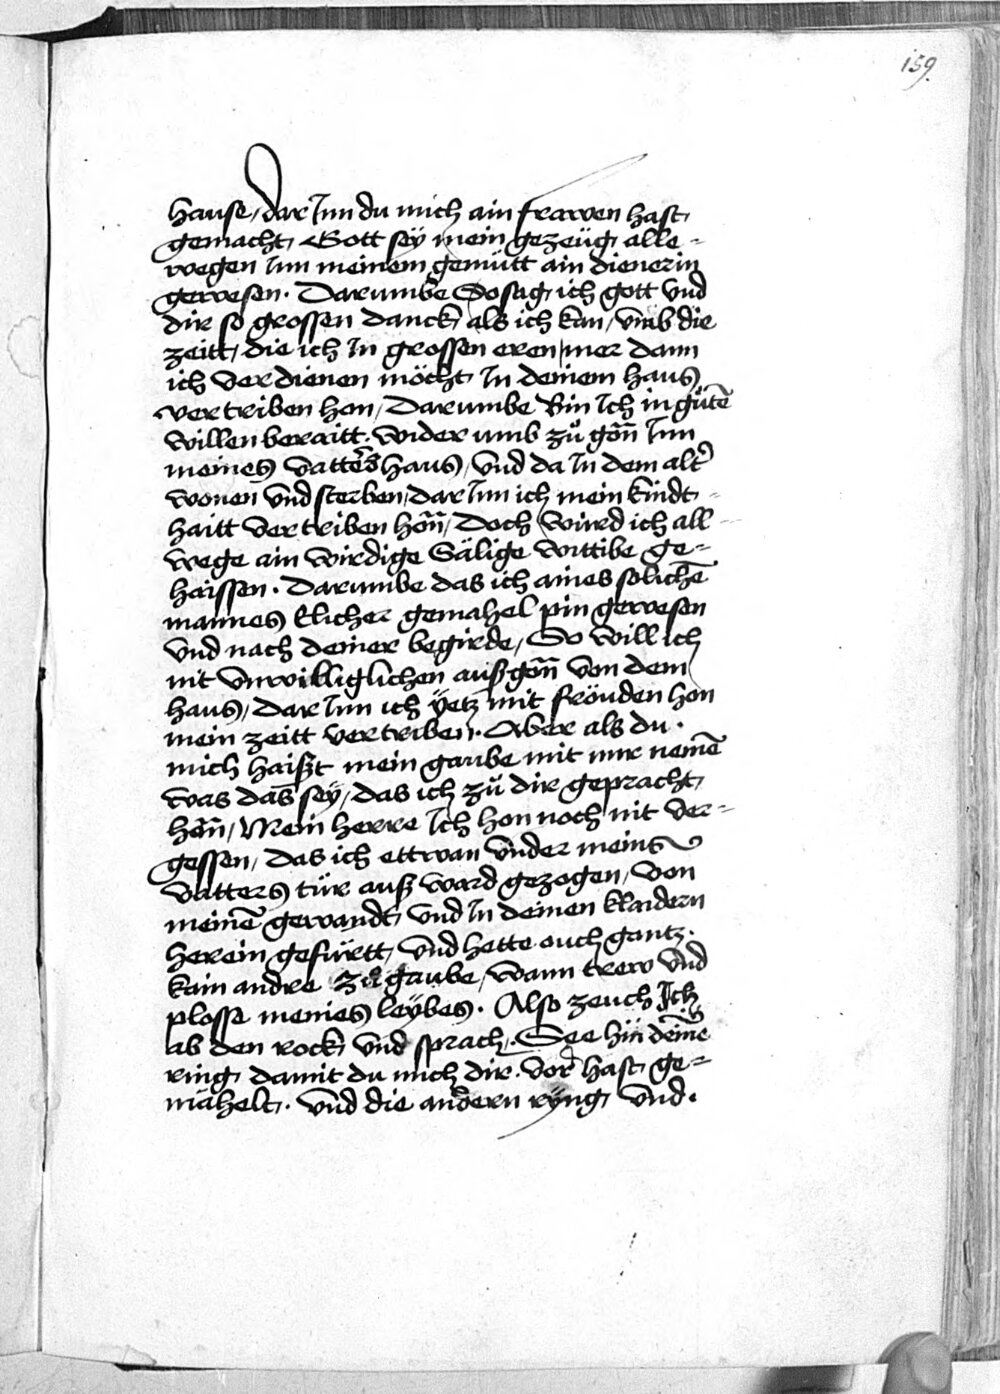 159.
hause / dar Inn du mich ain frawen hast
gemacht, Gott sey mein gezeüg, alle-
wegen Inn meinem gemütt ain dienerin
gewesen. Darumbe So sag ich gott vnd
dir so grossen danck, als ich kan / vmb die
zeitt, die ich In grossen eren / mer dann
ich verdienen möcht, In deinem haus
vertriben hon / Darumbe Bin Ich in gůtē
willen beraitt. wider umb zů gōn Inn
meines vatters haus / vnd da In dem alt͛
wonen vnd sterben / dar Inn ich mein kindt-
haitt vertriben hōn / Doch wird ich all-
wege ain wirdige Sälige wittibe ge-
haissen. Darumbe das ich aines solichē
mannes Elicher gemahel pin gewesen
vnd nach deiner begirde / So will ich
nit vnwilliglichen auß gōn von dem
haus / dar Inn ich yetz mit fröuden hon
mein zeitt vertriben. Aber als du.
mich haißt mein gaube mit mir nemē
was das sey / das ich zů dir gepracht,
hān / Mein herre Ich hon noch nit ver-
gessen / das ich ettwan vnder meins
vatters tür auß ward gezogen / von
meinē gewandt, vnd In deinen klaidern
herein gefürtt, vnd hette ouch gantz.
kain andre zů gaube / wann trew vnd
plosse meines leybes. Also zeuch Ich
ab den rock, vnd sprach. See hin deine
ring, damit du mich dir. vor hast ge-
mähelt. vnd die andern ryng, vnd.